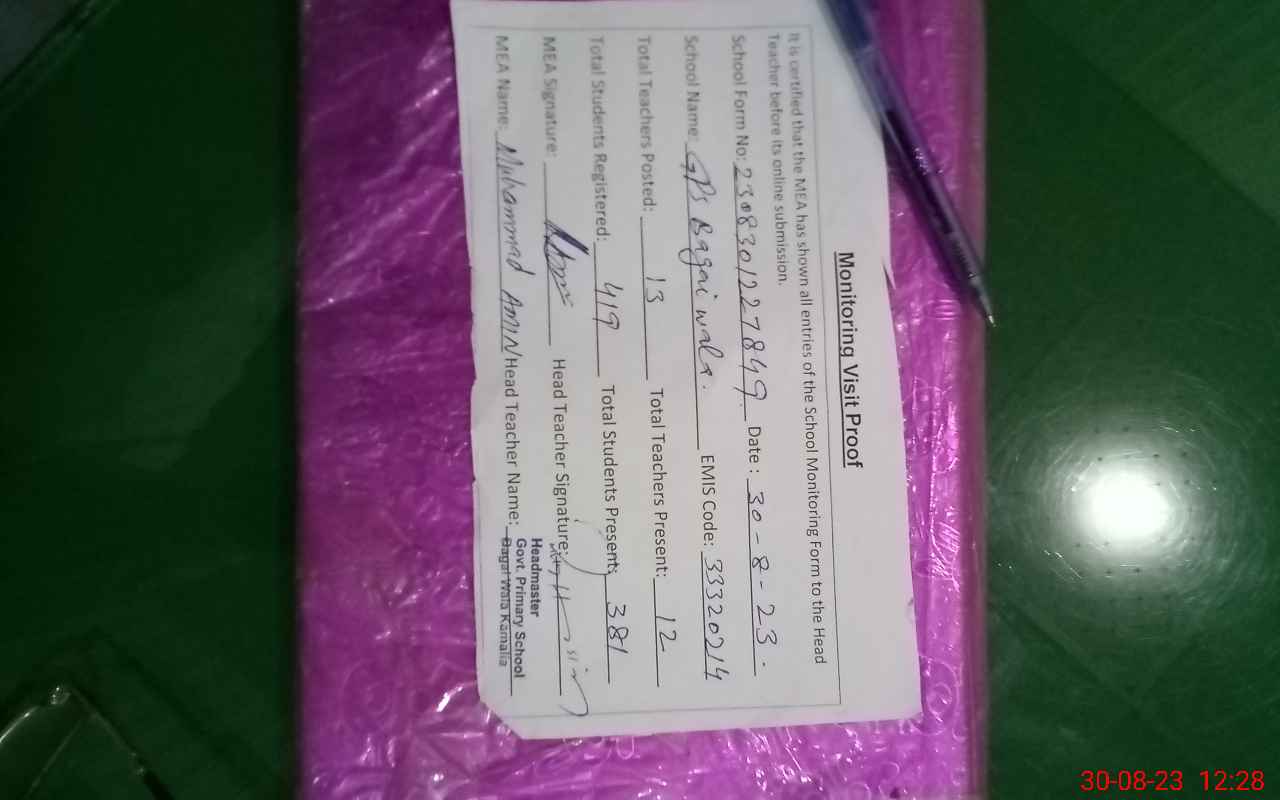 Monitoring Visit Proof
It is certified that the MEA has shown all entries of the School Monitoring Form to the Head
Teacher before its online submission.
School Form No: 2308301227849 Date : 30-8-23.
School Name: GPS Bagai wala. EMIS Code: 33320214
Total Teachers Posted: 13 Total Teachers Present: 12
Total Students Registered: 419 Total Students Present: 381
MEA Signature: Head Teacher Signature:
MEA Name: Muhammad AMIN Head Teacher Name:
Headmaster
Govt. Primary School
Bagai Wala Kamalia
30-08-23 12:28